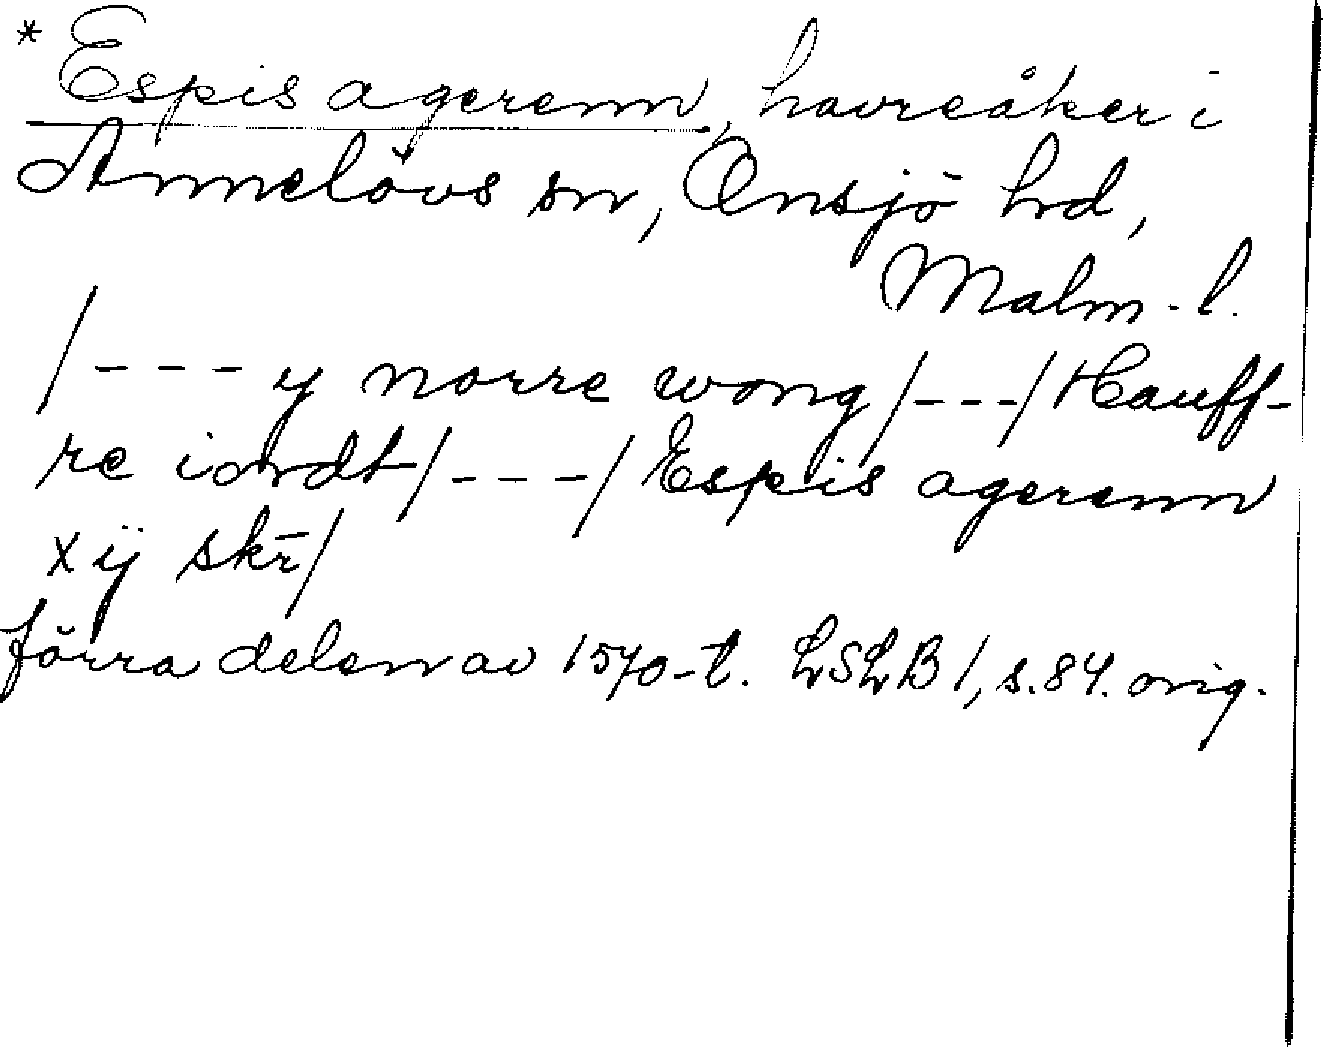 * Espis agerenn, havreåker i
Annelövs sn, Onsjö hd,
Malm. l.
/--- y norre wong /---/ Hauff-
re iordt /---/ Espis agerenn
xij skr̄/
förra delen av 1570-t. LSLB 1, s. 84. orig.